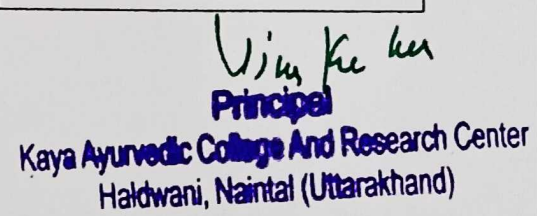 Principal
Kaya Ayurvedic College And Research Center
Haldwani, Naintal (Uttarakhand)